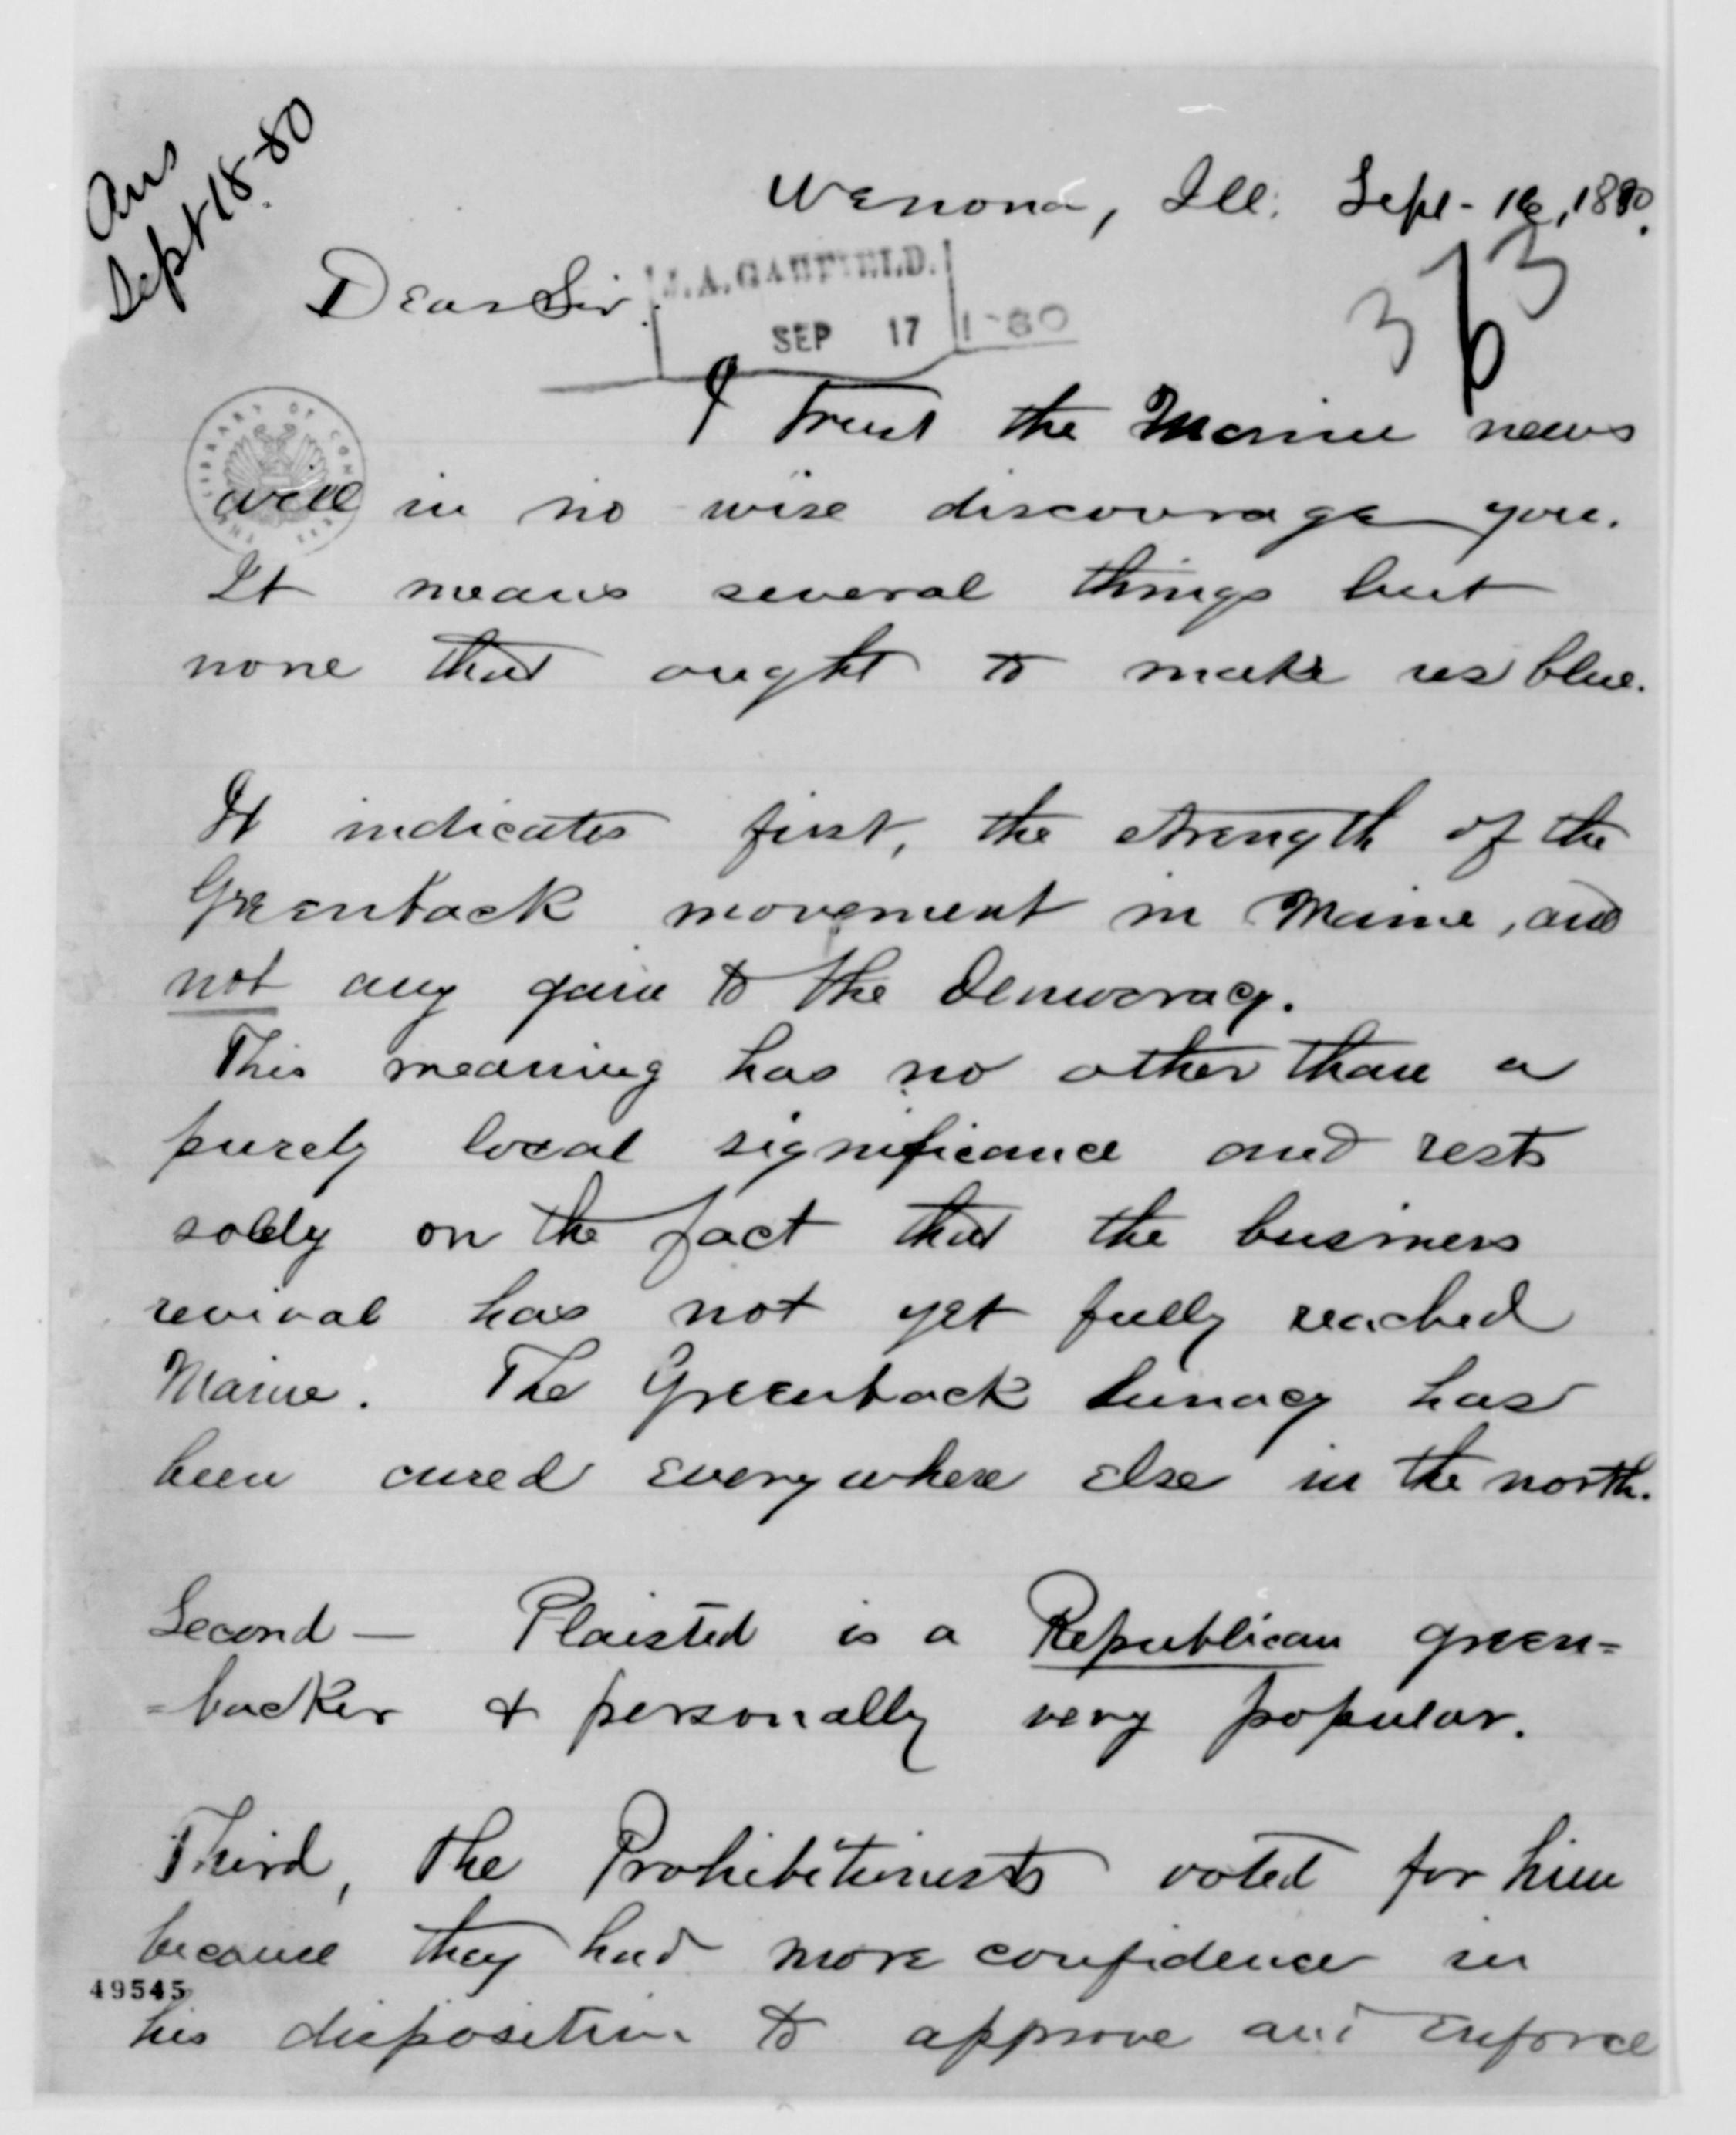 Ans
Sept 18-80
Wenona, Ill. Sept - 16, 1880.
363
Dear Sir.
J. A. GARFIELD.
SEP 17 1-80
I trust the Maine news
will in no wise discourage you.
It means several things but
none that ought to make us blue.
It indicates first, the strength of the
Greenback movement in Maine, and
not any gain to the Democracy.
This meaning has no other than a
purely local significance and rests
solely on the fact that the business
revival has not yet fully reached
Maine. The Greenback lunacy has
been cured everywhere else in the north.
Second — Plaisted is a Republican green=
=backer & personally very popular.
Third, the Prohibitionists voted for him
because they had more confidence in
49545
his disposition to approve and enforce